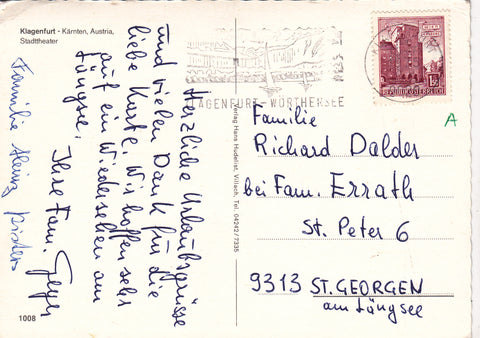 Klagenfurt - Kärnten, Austria,
Stadttheater
Herzliche Urlaubsgrüsse
und vielen Dank für die
liebe Karte. Wir hoffen sehr
auf ein Wiedersehen am
Längsee.
Ihre Fam. Geyer
Familie Heinz
1008
Verlag Hans Hudelist, Villach, Tel. 04242/7335
KLAGENFURT-WÖRTHERSEE
REPUBLIK ÖSTERREICH
A
Familie
Richard Dalder
bei Fam. Errath
St. Peter 6
9313 ST. GEORGEN
am Längsee